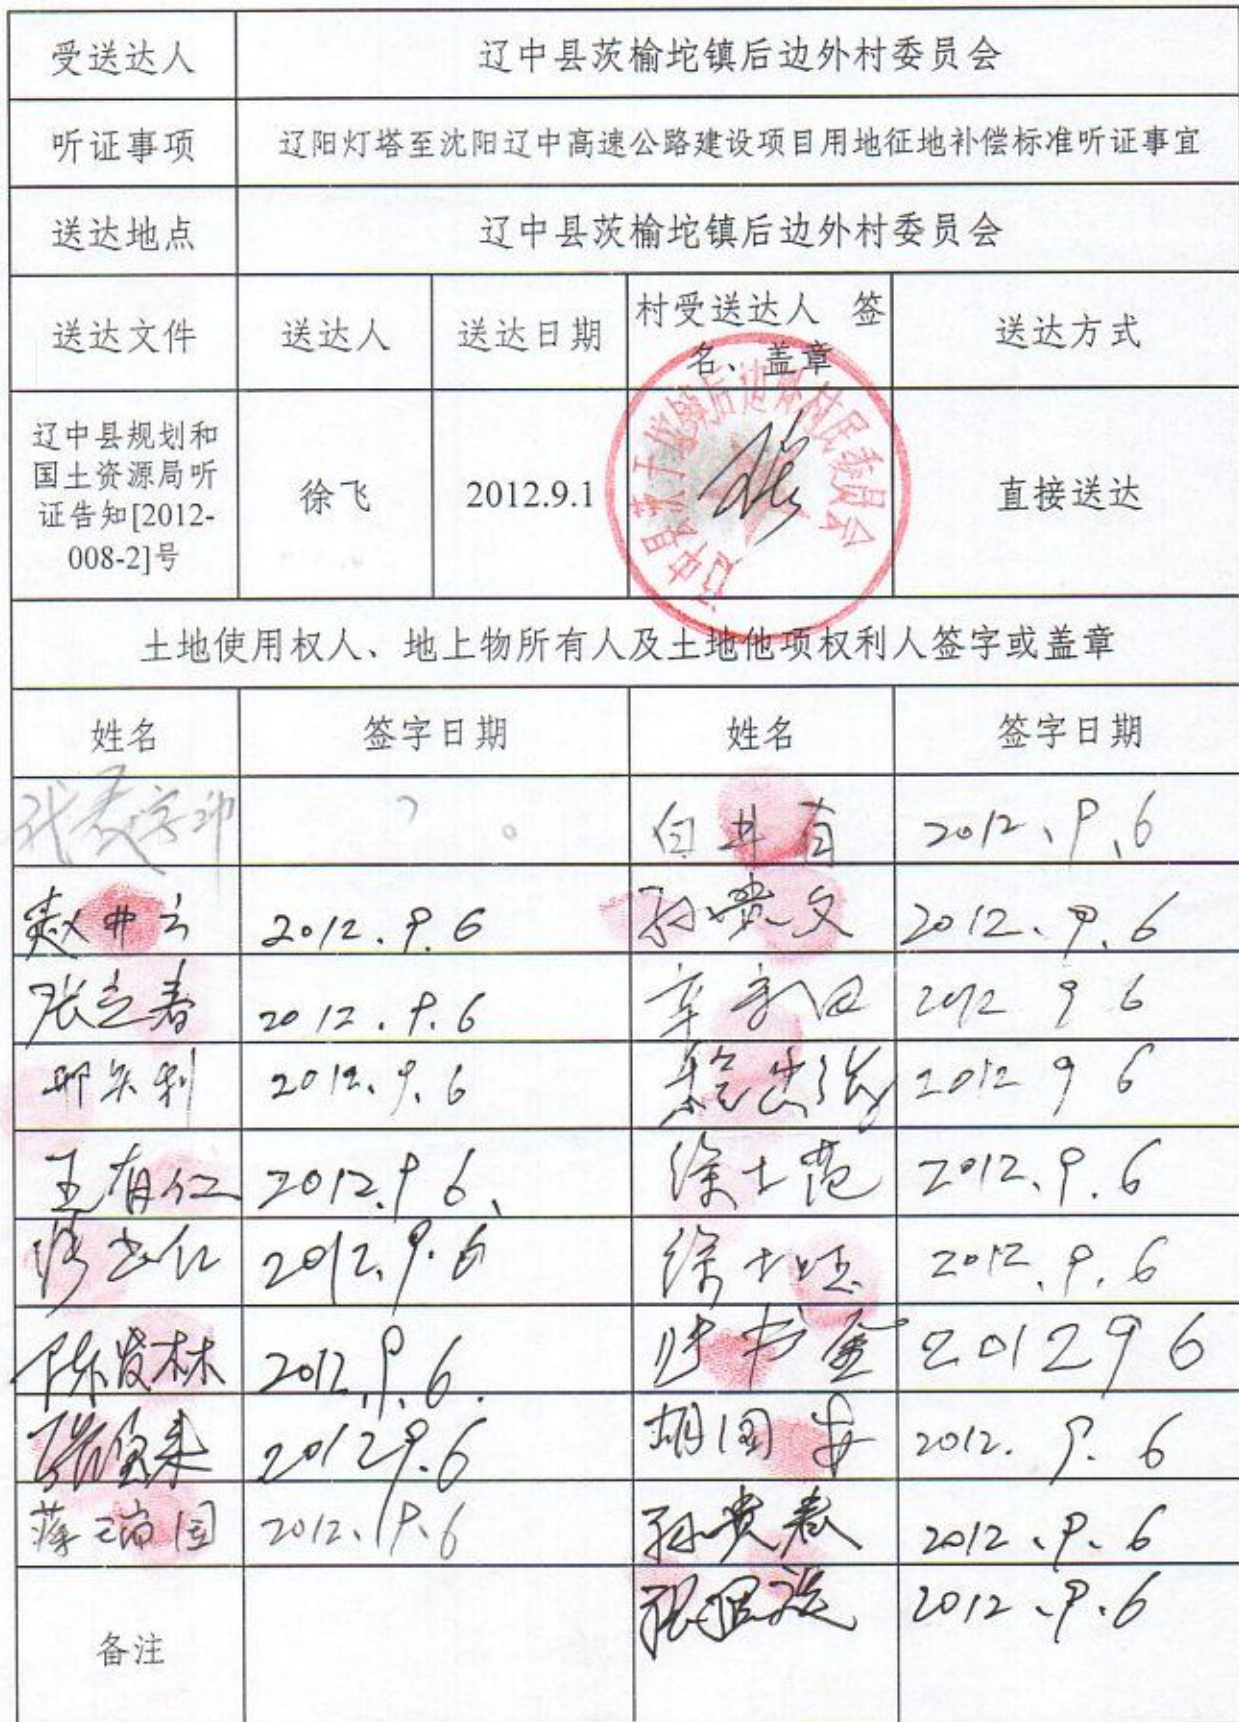 受送达人 辽中县茨榆坨镇后边外村委员会
听证事项 辽阳灯塔至沈阳辽中高速公路建设项目用地征地补偿标准听证事宜
送达地点 辽中县茨榆坨镇后边外村委员会
送达文件 送达人 送达日期 村受送达人 签名、盖章 送达方式
辽中县规划和
国土资源局听
证告知[2012-
008-2]号
徐飞 2012.9.1 直接送达
土地使用权人、地上物所有人及土地他项权利人签字或盖章
姓名 签字日期 姓名 签字日期
2012、9、6
赵井云 2012.9.6 孙贵文 2012.9.6
张立春 2012.9.6 2012 9 6
2012.9.6 2012 9 6
王有仁 2012.9 6、 徐士范 2012、9.6
2012.9.6 2012.9.6
陈发林 2012.9.6. 2012 9 6
2012 9.6 胡国安 2012. 9. 6
薄瑞国 2012.9.6 孙贵春 2012、9、6
2012、9.6
备注